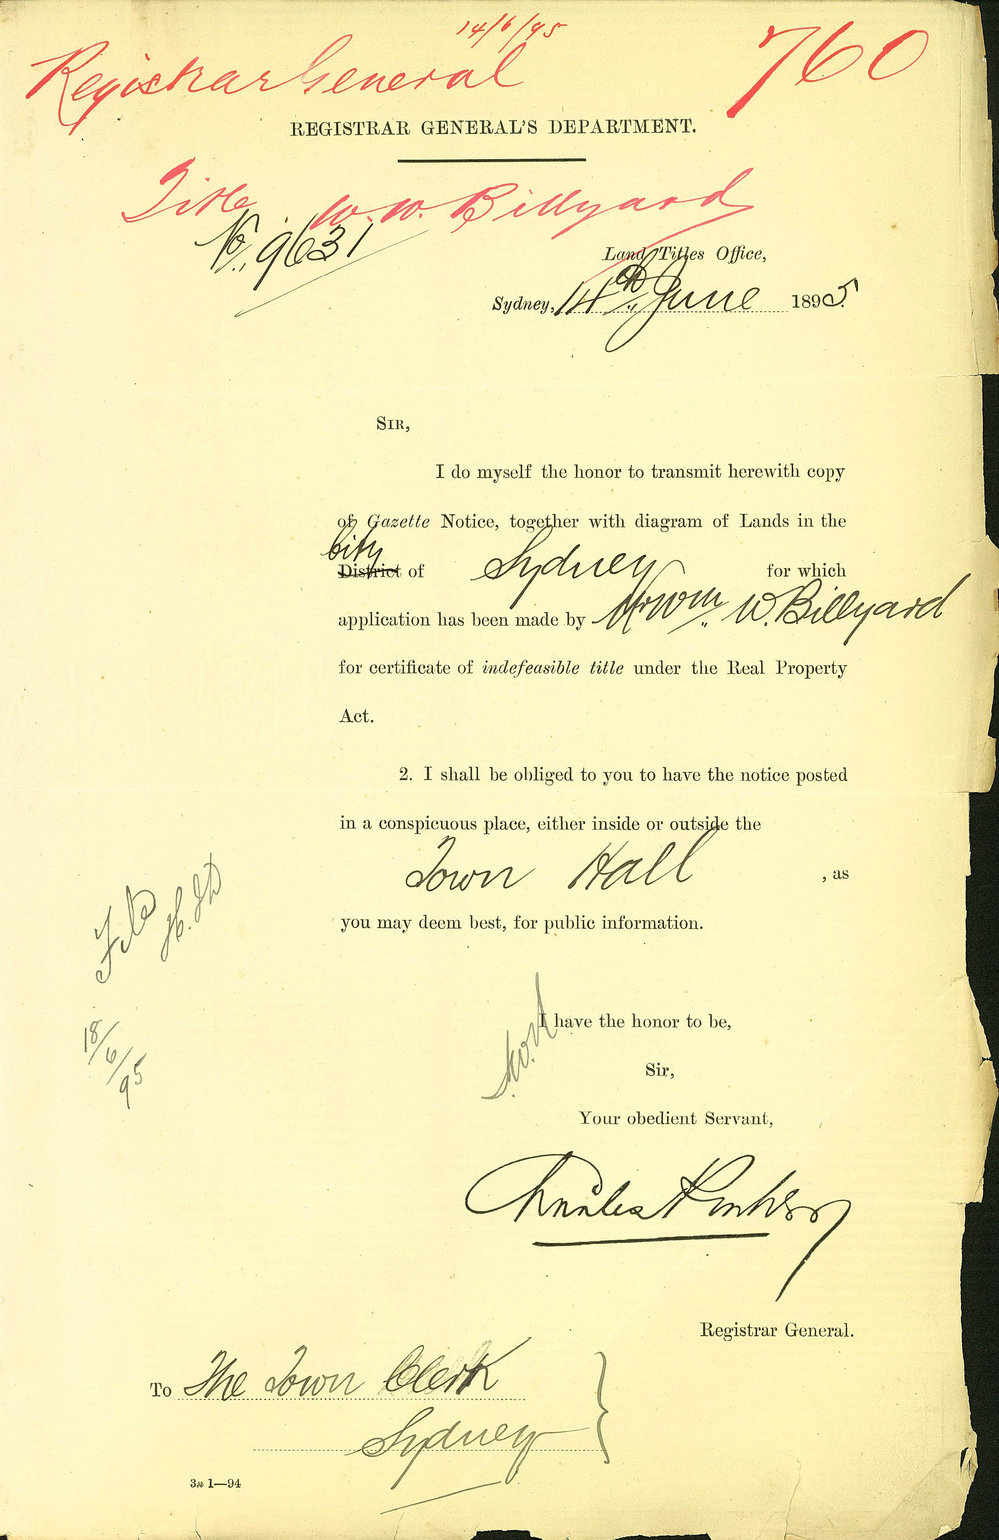 14/6/95
Registrar General
760
REGISTRAR GENERAL'S DEPARTMENT.
Title W. W. Billyard
No. 9631
Land Titles Office,
Sydney, 14th June 1895.
SIR,
I do myself the honor to transmit herewith copy
of Gazette Notice, together with diagram of Lands in the
City
District of Sydney for which
application has been made by Mr Wm. W. Billyard
for certificate of indefeasible title under the Real Property
Act.
2. I shall be obliged to you to have the notice posted
in a conspicuous place, either inside or outside the
Town Hall, as
you may deem best, for public information.
18/6/95
I have the honor to be,
Sir,
Your obedient Servant,
Charles
Registrar General.
To The Town Clerk
Sydney
1—94